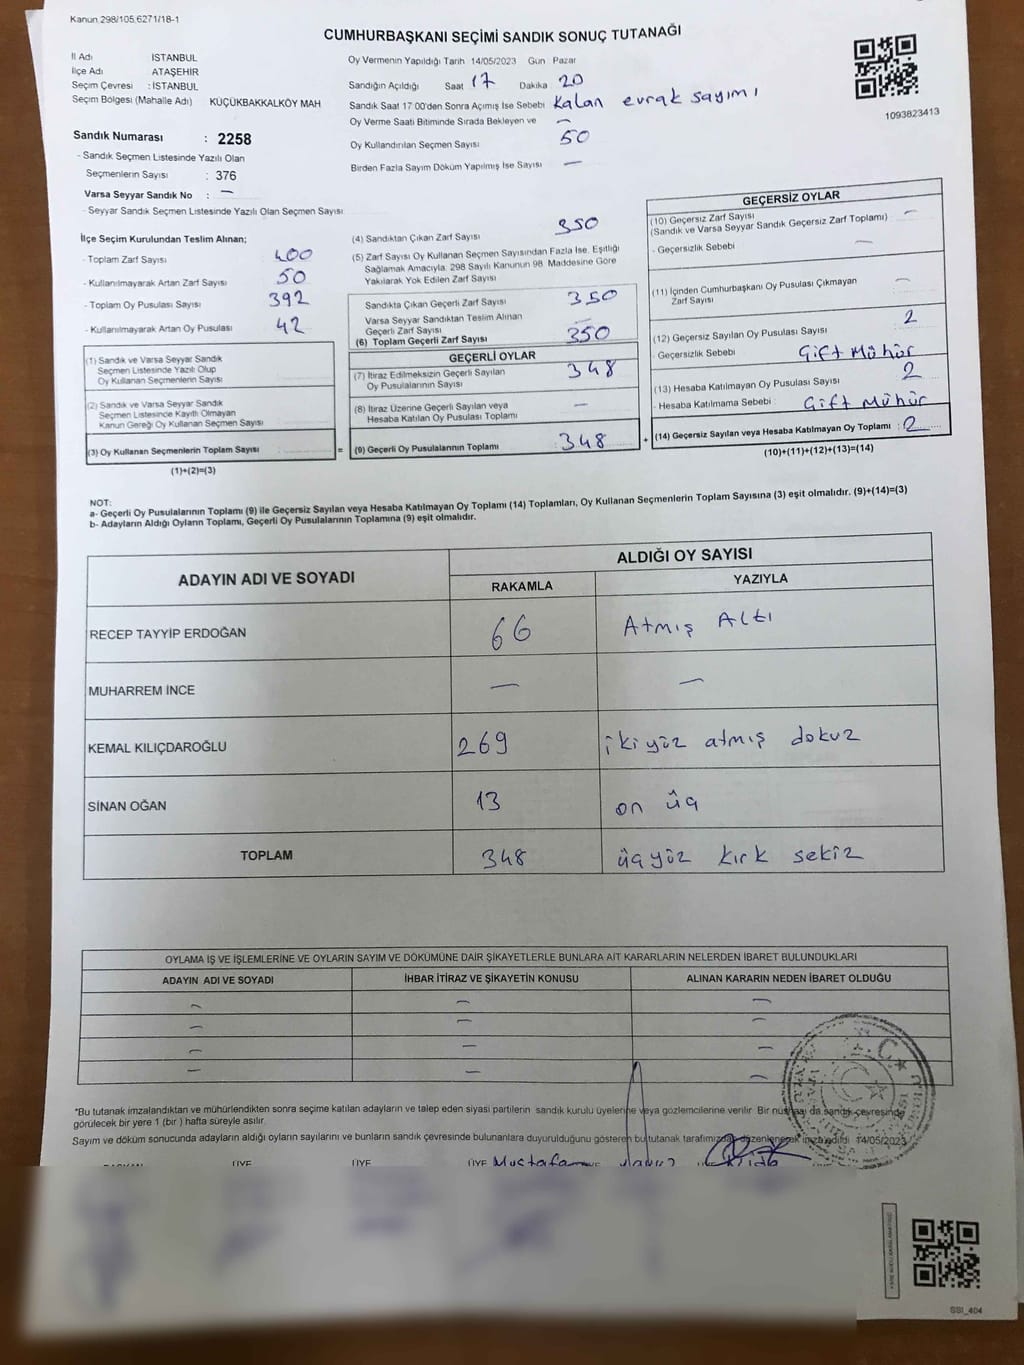 Kanun 298/105,6271/18-1
CUMHURBAŞKANI SEÇİMİ SANDIK SONUÇ TUTANAĞI
İl Adı İSTANBUL
İlçe Adı ATAŞEHİR
Seçim Çevresi : İSTANBUL
Seçim Bölgesi (Mahalle Adı) KÜÇÜKBAKKALKÖY MAH
Sandık Numarası : 2258
- Sandık Seçmen Listesinde Yazılı Olan
Seçmenlerin Sayısı : 376
Varsa Seyyar Sandık No : —
- Seyyar Sandık Seçmen Listesinde Yazılı Olan Seçmen Sayısı
Oy Vermenin Yapıldığı Tarih 14/05/2023 Gün Pazar
Sandığın Açıldığı Saat 17 Dakika 20
Sandık Saat 17:00'den Sonra Açımış İse Sebebi Kalan evrak sayımı
Oy Verme Saati Bitiminde Sırada Bekleyen ve —
Oy Kullandırılan Seçmen Sayısı 50
Birden Fazla Sayım Döküm Yapılmış İse Sayısı —
1093823413
İlçe Seçim Kurulundan Teslim Alınan;
- Toplam Zarf Sayısı 400
- Kullanılmayarak Artan Zarf Sayısı 50
- Toplam Oy Pusulası Sayısı 392
- Kullanılmayarak Artan Oy Pusulası 42
(1) Sandık ve Varsa Seyyar Sandık
Seçmen Listesinde Yazılı Olup
Oy Kullanan Seçmenlerin Sayısı
(2) Sandık ve Varsa Seyyar Sandık
Seçmen Listesinde Kayıtlı Olmayan
Kanun Gereği Oy Kullanan Seçmen Sayısı
(3) Oy Kullanan Seçmenlerin Toplam Sayısı =
(1)+(2)=(3)
(4) Sandıktan Çıkan Zarf Sayısı 350
(5) Zarf Sayısı Oy Kullanan Seçmen Sayısından Fazla İse, Eşitliği
Sağlamak Amacıyla; 298 Sayılı Kanunun 98. Maddesine Göre
Yakılarak Yok Edilen Zarf Sayısı
Sandıkta Çıkan Geçerli Zarf Sayısı 350
Varsa Seyyar Sandıktan Teslim Alınan
Geçerli Zarf Sayısı —
(6) Toplam Geçerli Zarf Sayısı 350
GEÇERLİ OYLAR
(7) İtiraz Edilmeksizin Geçerli Sayılan
Oy Pusulalarının Sayısı 348
(8) İtiraz Üzerine Geçerli Sayılan veya
Hesaba Katılan Oy Pusulası Toplamı —
(9) Geçerli Oy Pusulalarının Toplamı : 348 +
GEÇERSİZ OYLAR
(10) Geçersiz Zarf Sayısı —
(Sandık ve Varsa Seyyar Sandık Geçersiz Zarf Toplamı)
- Geçersizlik Sebebi —
(11) İçinden Cumhurbaşkanı Oy Pusulası Çıkmayan
Zarf Sayısı —
(12) Geçersiz Sayılan Oy Pusulası Sayısı 2
- Geçersizlik Sebebi Çift Mühür
(13) Hesaba Katılmayan Oy Pusulası Sayısı 2
- Hesaba Katılmama Sebebi : Çift Mühür
(14) Geçersiz Sayılan veya Hesaba Katılmayan Oy Toplamı : 2
(10)+(11)+(12)+(13)=(14)
NOT:
a- Geçerli Oy Pusulalarının Toplamı (9) ile Geçersiz Sayılan veya Hesaba Katılmayan Oy Toplamı (14) Toplamları, Oy Kullanan Seçmenlerin Toplam Sayısına (3) eşit olmalıdır. (9)+(14)=(3)
b- Adayların Aldığı Oyların Toplamı, Geçerli Oy Pusulalarının Toplamına (9) eşit olmalıdır.
ADAYIN ADI VE SOYADI
ALDIĞI OY SAYISI
RAKAMLA YAZIYLA
RECEP TAYYİP ERDOĞAN 66 Atmış Altı
MUHARREM İNCE — —
KEMAL KILIÇDAROĞLU 269 ikiyüz atmış dokuz
SİNAN OĞAN 13 on üç
TOPLAM 348 üçyüz kırk sekiz
OYLAMA İŞ VE İŞLEMLERİNE VE OYLARIN SAYIM VE DÖKÜMÜNE DAİR ŞİKAYETLERLE BUNLARA AİT KARARLARIN NELERDEN İBARET BULUNDUKLARI
ADAYIN ADI VE SOYADI İHBAR İTİRAZ VE ŞİKAYETİN KONUSU ALINAN KARARIN NEDEN İBARET OLDUĞU
— — —
— — —
— — —
— — —
*Bu tutanak imzalandıktan ve mühürlendikten sonra seçime katılan adayların ve talep eden siyasi partilerin sandık kurulu üyelerine veya gözlemcilerine verilir. Bir nüshası da sandık çevresinde
görülecek bir yere 1 (bir) hafta süreyle asılır.
Sayım ve döküm sonucunda adayların aldığı oyların sayılarını ve bunların sandık çevresinde bulunanlara duyurulduğunu gösteren bu tutanak tarafımızdan düzenlenerek imza edildi 14/05/2023
BAŞKAN ÜYE ÜYE ÜYE Mustafa
T.C.
SSI_404